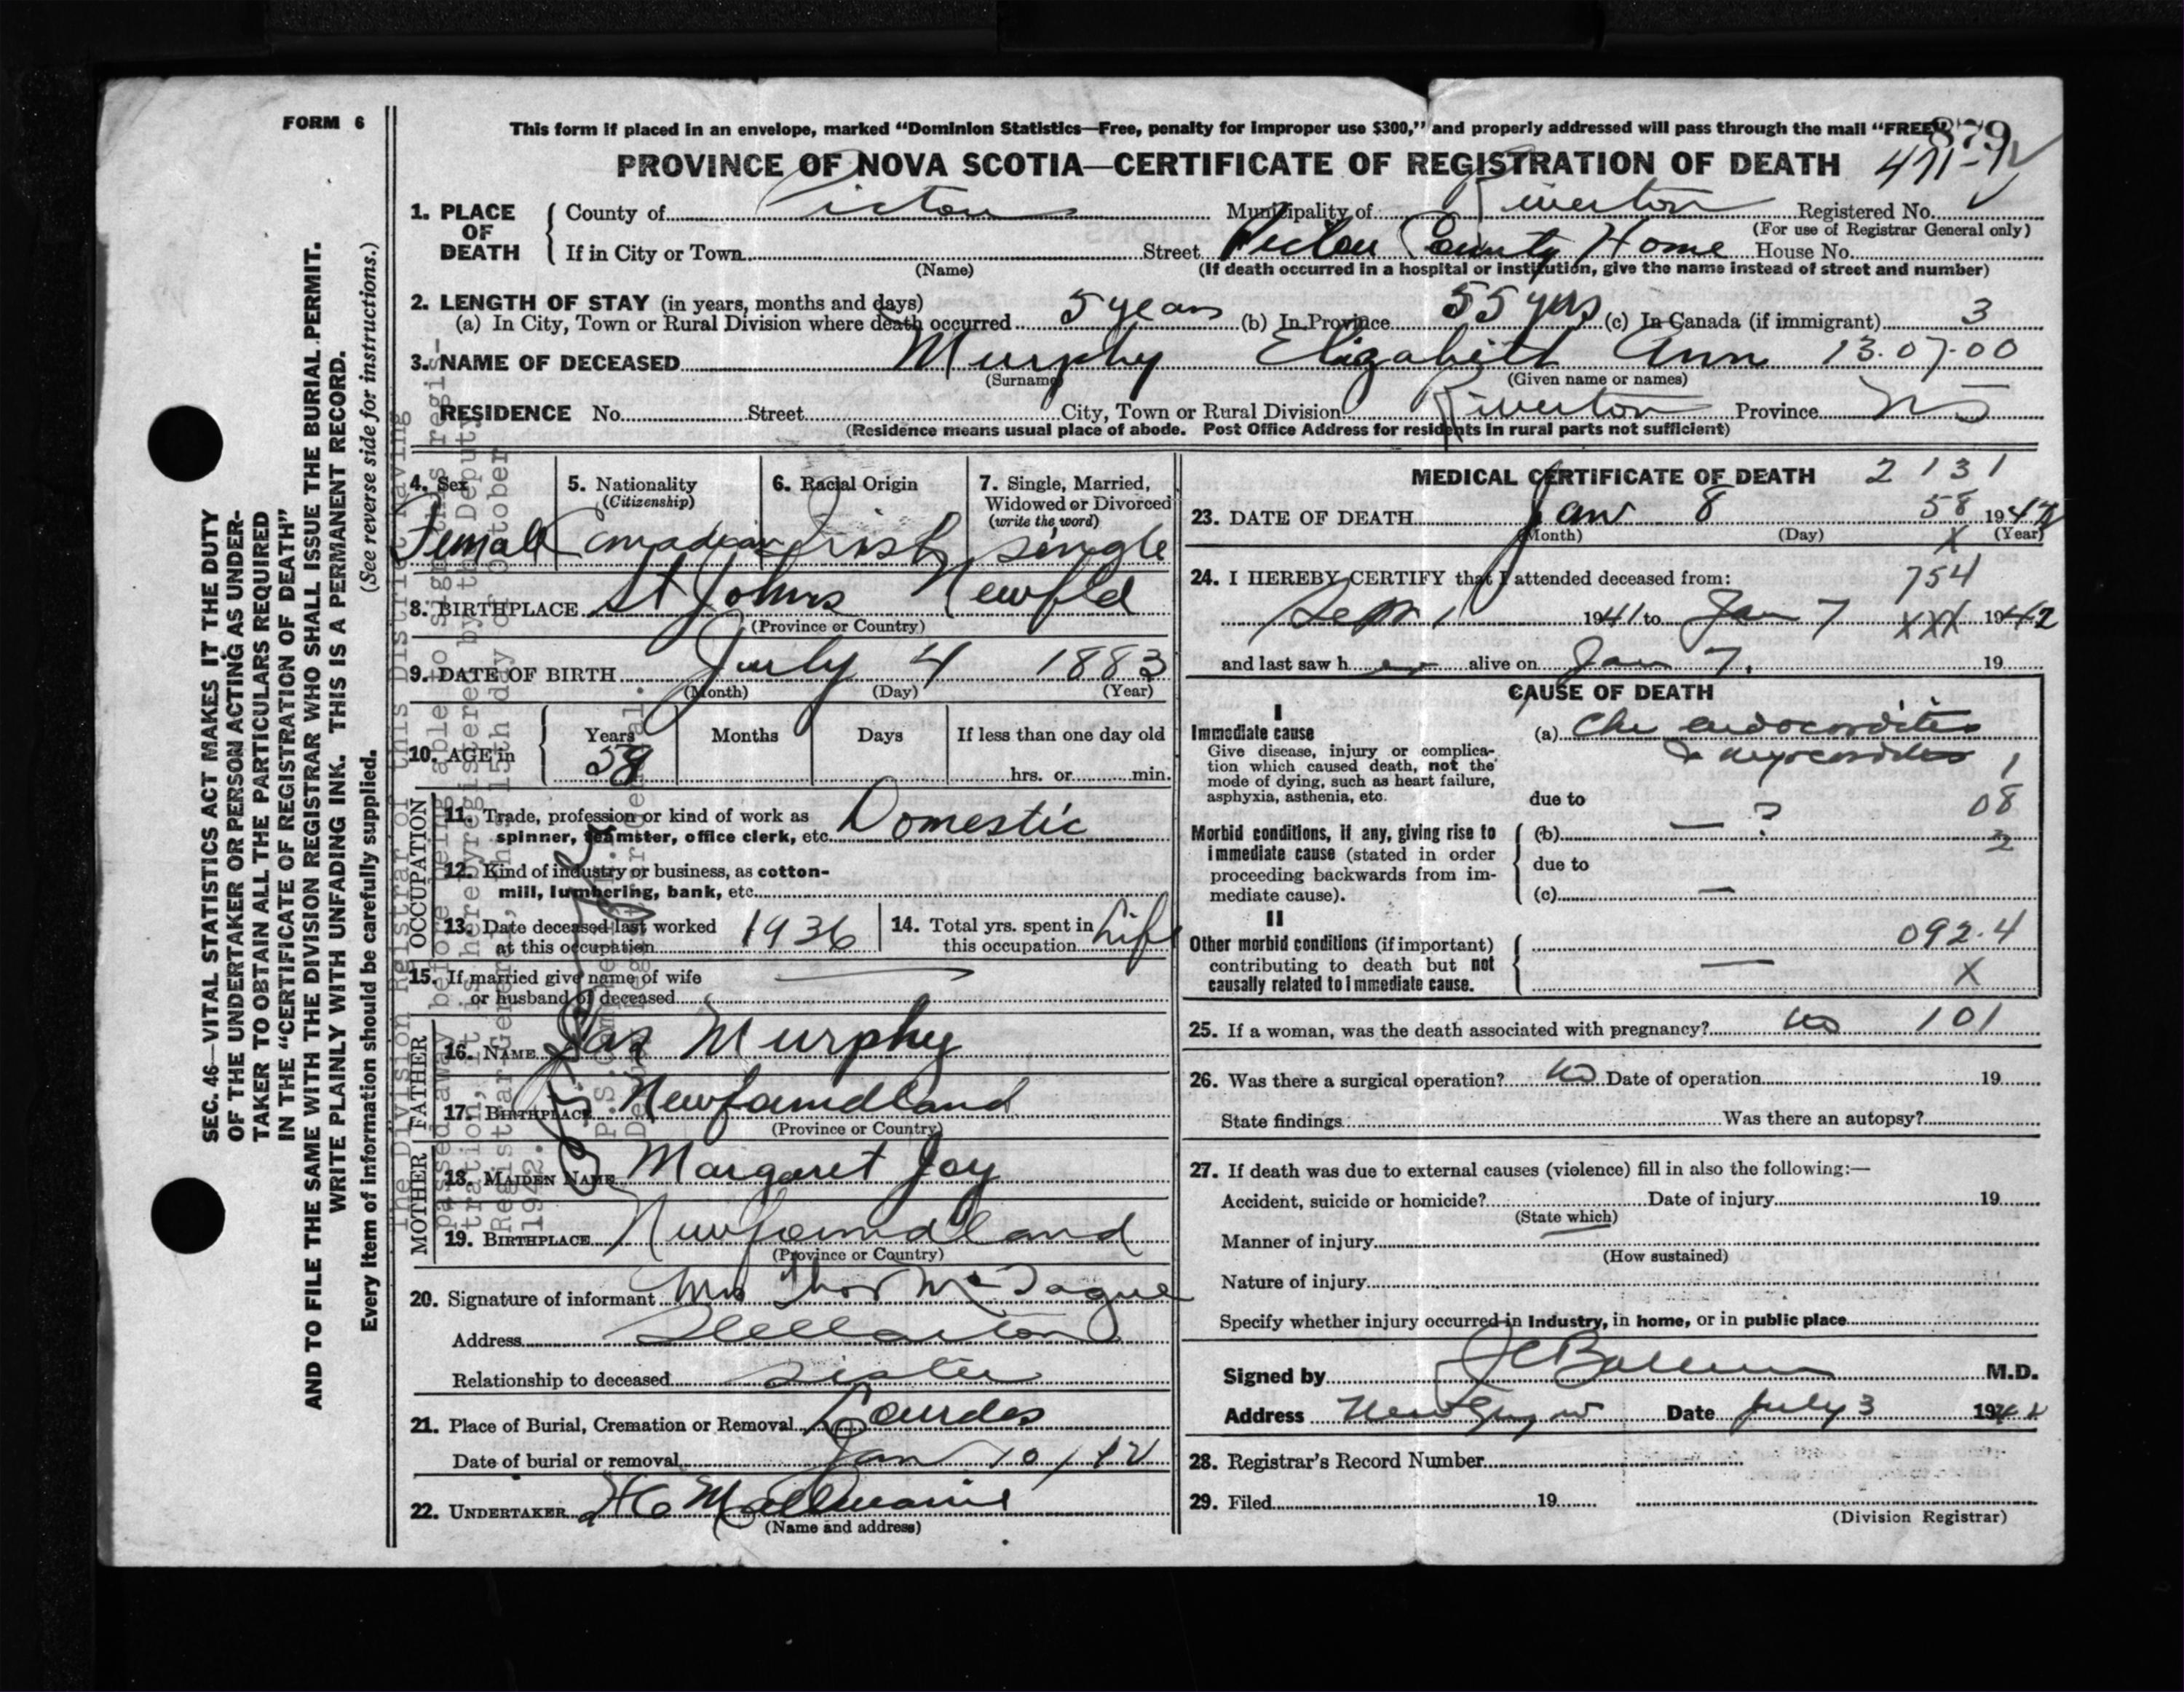 FORM 6
This form if placed in an envelope, marked "Dominion Statistics—Free, penalty for improper use $300," and properly addressed will pass through the mail "FREE"
879
PROVINCE OF NOVA SCOTIA—CERTIFICATE OF REGISTRATION OF DEATH
1. PLACE OF DEATH
County of Pictou Municipality of Riverton Registered No.
(For use of Registrar General only)
If in City or Town Street Pictou County Home House No.
(Name) (If death occurred in a hospital or institution, give the name instead of street and number)
2. LENGTH OF STAY (in years, months and days)
(a) In City, Town or Rural Division where death occurred 5 years (b) In Province 55 yrs (c) In Canada (if immigrant) 3
3. NAME OF DECEASED Murphy Elizabeth Ann 13.07.00
(Surname) (Given name or names)
RESIDENCE No. Street City, Town or Rural Division Riverton Province NS
(Residence means usual place of abode. Post Office Address for residents in rural parts not sufficient)
4. Sex
Female
5. Nationality
(Citizenship)
Canadian
6. Racial Origin
Irish
7. Single, Married,
Widowed or Divorced
(write the word)
single
8. BIRTHPLACE St Johns Newfld
(Province or Country)
9. DATE OF BIRTH July 4 1883
(Month) (Day) (Year)
10. AGE in
Years Months Days If less than one day old
hrs. or min.
OCCUPATION
11. Trade, profession or kind of work as
spinner, teamster, office clerk, etc. Domestic
12. Kind of industry or business, as cotton-
mill, lumbering, bank, etc.
13. Date deceased last worked
at this occupation 1936
14. Total yrs. spent in
this occupation Life
15. If married give name of wife
or husband of deceased
FATHER
16. NAME Jas Murphy
17. BIRTHPLACE Newfoundland
(Province or Country)
MOTHER
18. MAIDEN NAME Margaret Joy
19. BIRTHPLACE Newfoundland
(Province or Country)
20. Signature of informant Mrs Thos McTague
Address Stellarton
Relationship to deceased sister
21. Place of Burial, Cremation or Removal Lourdes
Date of burial or removal Jan 10/42
22. UNDERTAKER
(Name and address)
MEDICAL CERTIFICATE OF DEATH 2131
23. DATE OF DEATH Jan 8 58 1942
(Month) (Day) X (Year)
24. I HEREBY CERTIFY that I attended deceased from: 754
Sept 1 1941 to Jan 7 XXX 1942
and last saw her alive on Jan 7. 19
CAUSE OF DEATH
I
Immediate cause
Give disease, injury or complica-
tion which caused death, not the
mode of dying, such as heart failure,
asphyxia, asthenia, etc.
(a) Chr endocarditis
& myocarditis 1
due to 08
Morbid conditions, if any, giving rise to
immediate cause (stated in order
proceeding backwards from im-
mediate cause).
(b) — ? 2
due to
(c) —
II
Other morbid conditions (if important)
contributing to death but not
causally related to immediate cause.
092.4
— X
25. If a woman, was the death associated with pregnancy? no 101
26. Was there a surgical operation? no Date of operation 19
State findings Was there an autopsy?
27. If death was due to external causes (violence) fill in also the following:—
Accident, suicide or homicide? Date of injury 19
(State which)
Manner of injury
(How sustained)
Nature of injury
Specify whether injury occurred in industry, in home, or in public place
Signed by M.D.
Address New Glasgow Date July 3 1942
28. Registrar's Record Number
29. Filed 19
(Division Registrar)
SEC. 46—VITAL STATISTICS ACT MAKES IT THE DUTY
OF THE UNDERTAKER OR PERSON ACTING AS UNDER-
TAKER TO OBTAIN ALL THE PARTICULARS REQUIRED
IN THE "CERTIFICATE OF REGISTRATION OF DEATH"
AND TO FILE THE SAME WITH THE DIVISION REGISTRAR WHO SHALL ISSUE THE BURIAL PERMIT.
WRITE PLAINLY WITH UNFADING INK. THIS IS A PERMANENT RECORD.
Every item of information should be carefully supplied. (See reverse side for instructions.)
The Division Registrar of this District having
passed away before being able to sign this regis-
tration, it is hereby registered by the Deputy
Registrar General, this 15th day of October
1942.